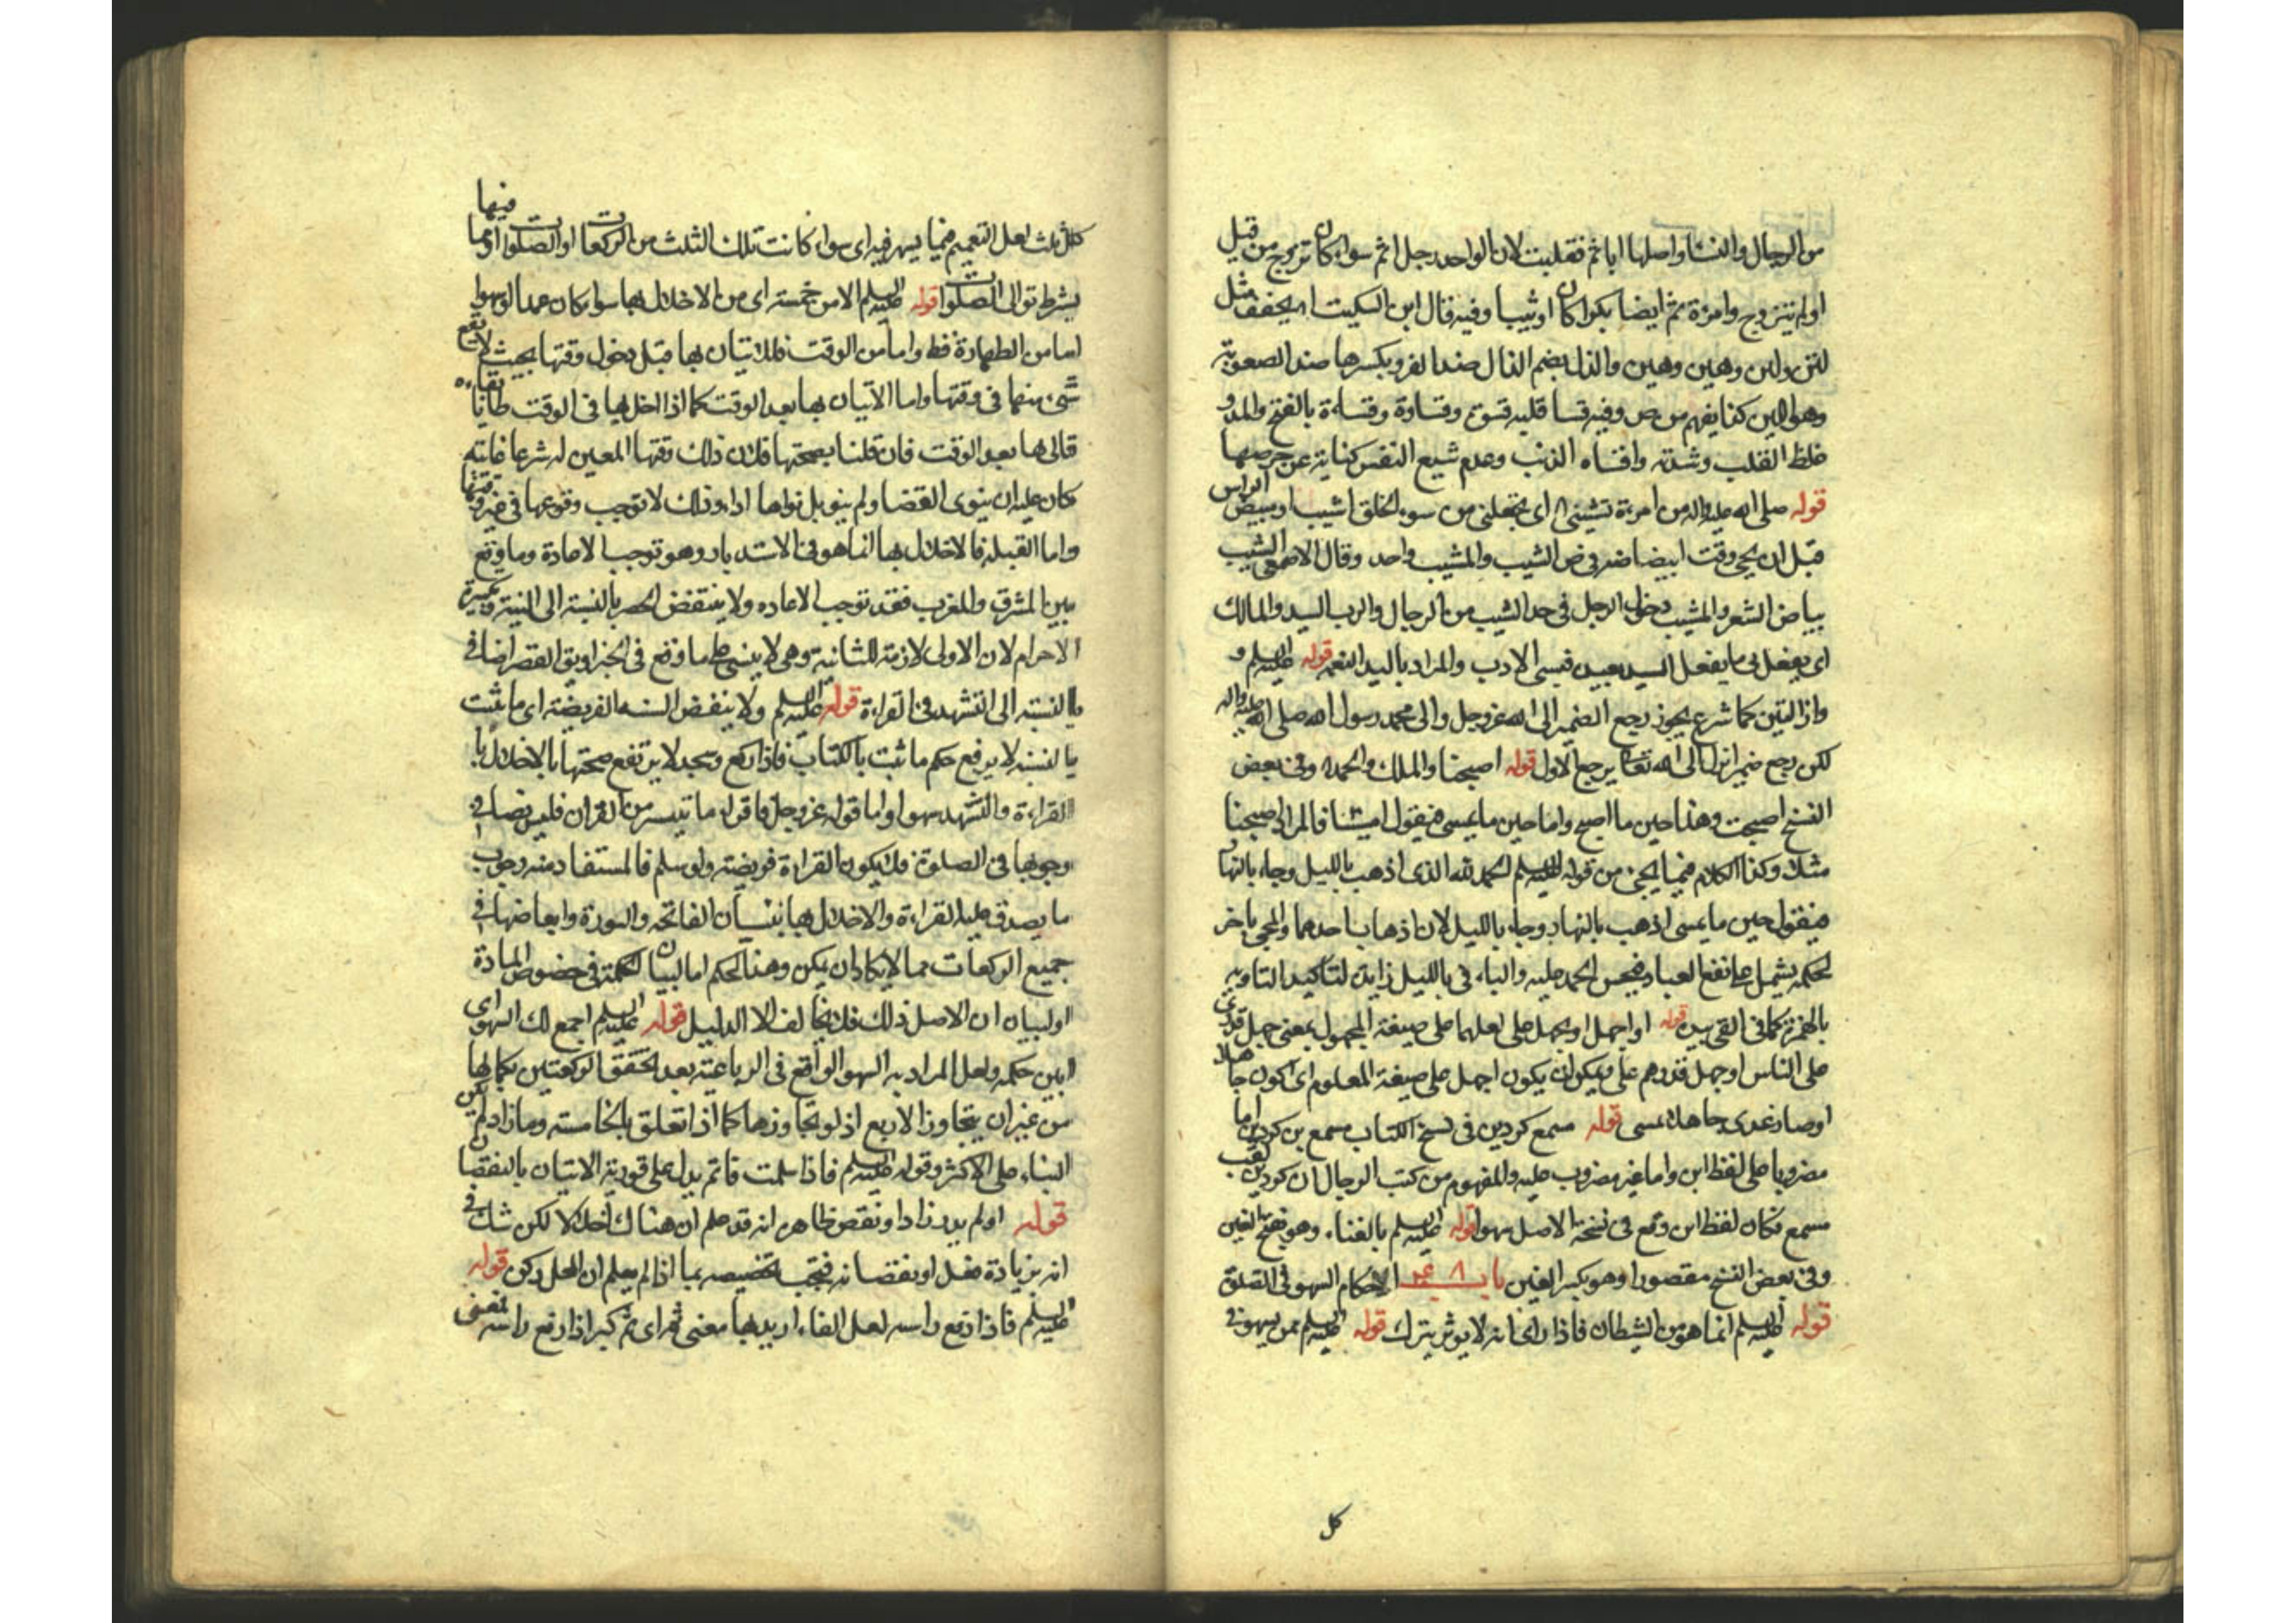 من الرجال والنسا واصلها ايايم فقلبت لان الواحد رجل ايم سواء كان تزوج من قبل
اولم يتزوج وامرءة ايم ايضا بكرا كان اوثيبا وفيه قال ابن السكيت يخفف مثل
لين ولين وهين وهين والذل بضم الذال ضد العز وبكسرها ضد الصعوبة
وهو اللين كذا يفهم من ص وفيه قسا قلبه قسوة وقساوة وقساءة بالفتح والمد و
غلظ القلب وشدته واقساه الذنب وعدم شبع النفس كناية عن حرصها
قوله صلى الله عليه واله من امرءة تشيبنى اى تجعلنى من سوء الخلق اشيب او مبيض الراس
قبل ان يجئ وقت ابيضاضه فى ص الشيب والمشيب واحد وقال الاصمعى الشيب
بياض الشعر والمشيب دخول الرجل فى حد الشيب من الرجال والرب السيد والمالك
اى يفعل بى ما يفعل السيد بعبده فيسئ الادب والمراد باليد النعمة قوله عليه السلم و
وازالتين كما شرع يجوز رجع الضمير الى الله عز وجل والى محمد رسول الله صلى الله عليه واله
لكن رجع ضمير انزل الى الله تعالى يرجح الاول قوله اصبحنا والملك والحمد لله وفى بعض
النسخ اصبحت وهذا حين ما اصبح واما حين ما يمسى فيقول امسينا فالمراد اصبحنا
مثلا وكذا الكلام فيما يجئ من قوله عليه السلم الحمد لله الذى اذهب بالليل وجاء بالنهار
فيقول حين ما يمسى اذهب بالنهار وجاء بالليل لان اذهاب احدهما والمجئ باخر
لحكمة يشمل على نفع العباد فيحسن الحمد عليه والباء فى بالليل زايدة لتاكيد التاويه
بالهمزة كما فى القى بيده قوله او اجهل او يجهل على لعلهما على صيغة المجهول بمعنى جهل قدرى
على الناس او جهل قدرهم على ويمكن ان يكون اجهل على صيغة المعلوم اى اكون جاهلا
اوصار غدى جاهلا بمسى قوله مسمع كردين فى نسخ الكتاب مسمع بن كردين اما
مضروبا على لفظ ابن واما غير مضروب عليه والمفهوم من كتب الرجال ان كردين لقب
مسمع فكان لفظ ابن وقع فى نسخة الاصل سهوا قوله عليه السلم بالغناء وهو بفتح الغين
وفى بعض النسخ مقصورا وهو بكسر الغين باب احكام السهو فى الصلوة
قوله عليه السلم انما هو من الشيطان فاذا راى انه لا يوثر يترك قوله عليه السلم ممن يسهو فى
كل
كل ثلث لعل التعميم فيما يسهو فيه اى سواء كانت تلك الثلث من الركعات او الصلوات اومما فيها
بشرط توالى الصلوات قوله عليه السلم الا من خمسة اى من الاخلال بها سواء كان عمدا او سهوا
اما من الطهارة فظ واما من الوقت فلاتيان بها قبل دخول وقتها بحيث لا يقع
شئ منها فى وقتها واما الاتيان بها بعد الوقت كما اذا اخل بها فى الوقت ظانا بقاءه
فاتى بها بعد الوقت فان قلنا بصحتها فلان ذلك وقتها المعين له شرعا غايته
كان عليه ان ينوى القضا ولم ينو بل نواها اداء وذلك لا توجب وقوعها فى غير وقتها
واما القبلة فالاخلال بها انما هو فى الاستدبار وهو توجب الاعادة وما وقع
بين المشرق والمغرب فقد توجب الاعاده ولا ينتقض الحصر بالنسبة الى النية وتكبيرة
الاحرام لان الاولى لازمة للثانية وهى لا ينسى على ما وقع فى الخبر او يق القصر اضافى
بالنسبة الى التشهد فى القراءة قوله عليه السلم ولا ينقض السنة الفريضة اى ما ثبت
بالسنة لا يرفع حكم ما ثبت بالكتاب فاذا ركع وسجد لا يرتفع صحتها بالاخلال با
القراءة والتشهد سهوا واما قوله عز وجل فاقرؤا ما تيسر من القران فليس نصا فى
وجوبها فى الصلوة فلا يكون القراءة فريضة ولو سلم فالمستفاد منه وجوب
ما يصدق عليه القراءة والاخلال بها بنسيان الفاتحة والسورة وابعاضها فى
جميع الركعات مما لا يكاد ان يكن وهذا الحكم اما لبيان الحكمة فى خصوص المادة
اولبيان ان الاصل ذلك فلا يخالف الا الدليل قوله عليه السلم اجمع لك السهو اى
ابين حكمه ولعل المراد به السهو الواقع فى الرباعية بعد تحقق الركعتين بكمالها
من غير ان يتجاوز الاربع اذ لو تجاوزها كما اذا تعلق بالخامسة وما زاد لم يكن
البناء على الاكثر وقوله عليه السلم فاذا سلمت فاتم يدل على فورية الاتيان بالنقصان
قوله اولم يدر زاد او نقص ظاهره انه قد علم ان هناك اخلالا لكن شك فى
انه بزيادة فعل او بنقصانه فيجب تخصيصه بما اذا لم يعلم ان المحل ركن قوله
عليه السلم فاذا رفع راسه لعل الفاء اريد بها معنى ثم اى ثم كبر اذا رفع راسه